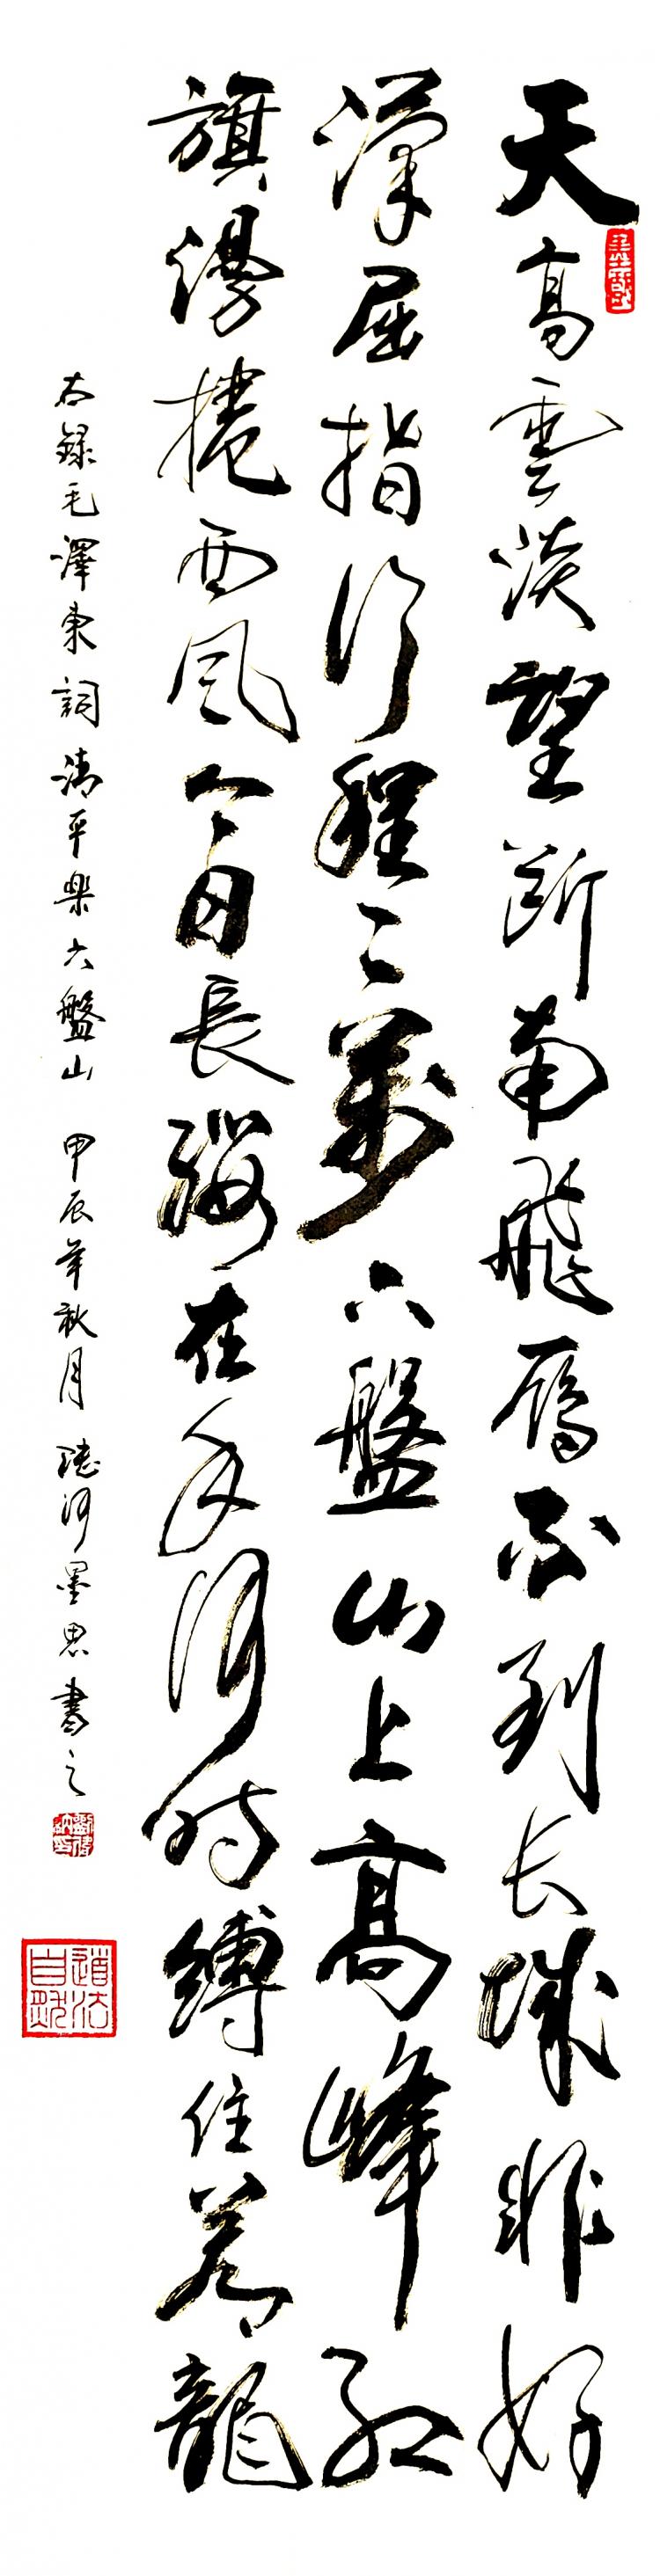 天高雲淡望断南飛雁不到长城非好
漢屈指行程二萬六盤山上高峰红
旗漫捲西风今日長纓在手何时縛住蒼龍
右録毛澤東詞清平樂六盤山 甲辰年秋月 河墨思書之
道法自然